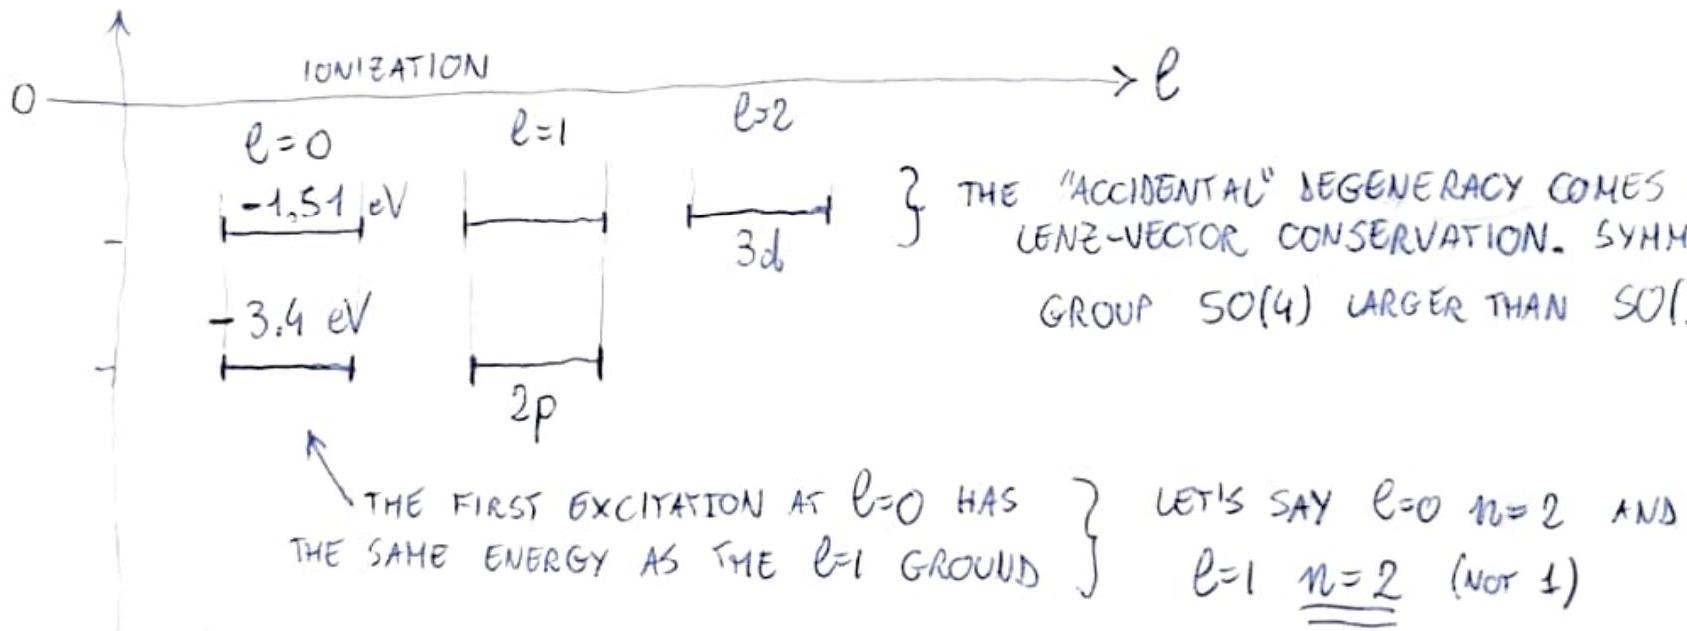 IONIZATION
0
ℓ
ℓ=0
ℓ=1
ℓ=2
-1.51 eV
3d
- 3.4 eV
2p
} THE "ACCIDENTAL" DEGENERACY COMES
LENZ-VECTOR CONSERVATION. SYMM
GROUP SO(4) LARGER THAN SO(
THE FIRST EXCITATION AT ℓ=0 HAS
THE SAME ENERGY AS THE ℓ=1 GROUND
} LET'S SAY ℓ=0 n=2 AND
ℓ=1 n=2 (NOT 1)